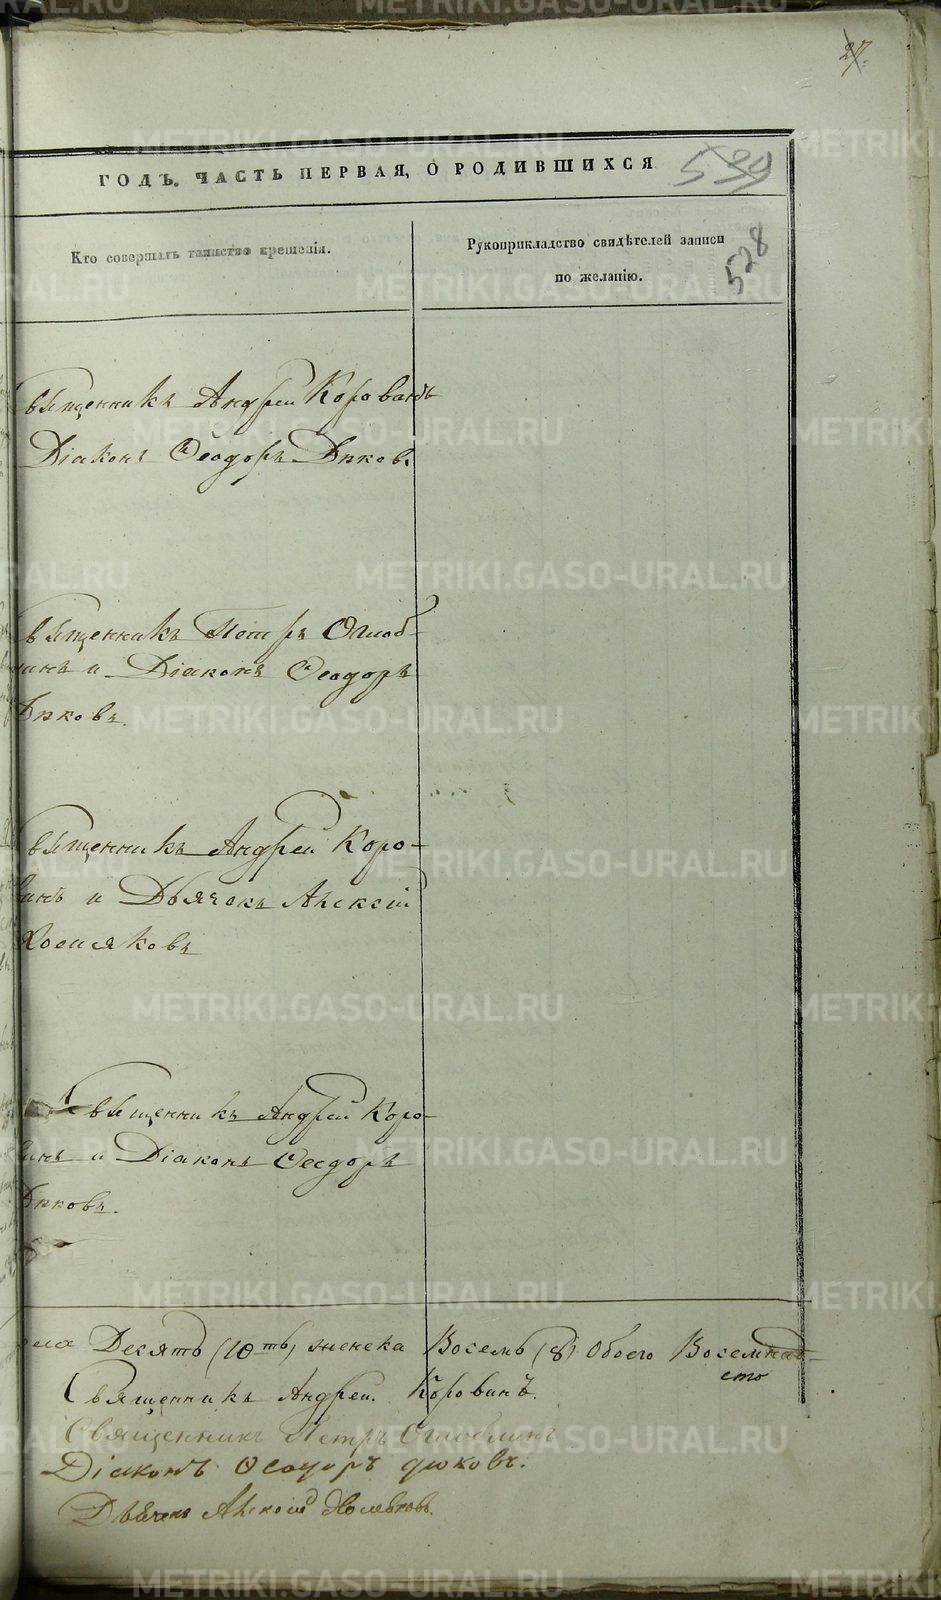 27.
ГОДЪ. ЧАСТЬ ПЕРВАЯ, О РОДИВШИХСЯ
539
Кто совершалъ таинство крещенія.
Рукоприкладство свидѣтелей записи
по желанію.
528
Священникъ Андрей Коровинъ
Діаконъ Ѳеодоръ
Священникъ Петръ Оглоб-
линъ и Діаконъ Ѳеодоръ
Священникъ Андрей Коро-
винъ и Дьячекъ Алексѣй
Хомяковъ
Священникъ Андрей Коро-
винъ и Діаконъ Ѳеодоръ
Десять (10ть) женска Восемь (8) Обоего Восемнад-
сто
Священникъ Андрей Коровинъ.
Священникъ Петръ Оглоблинъ
Діаконъ Ѳеодоръ Дюковъ.
Дьячекъ Алексѣй Хомяковъ.
METRIKI.GASO-URAL.RU